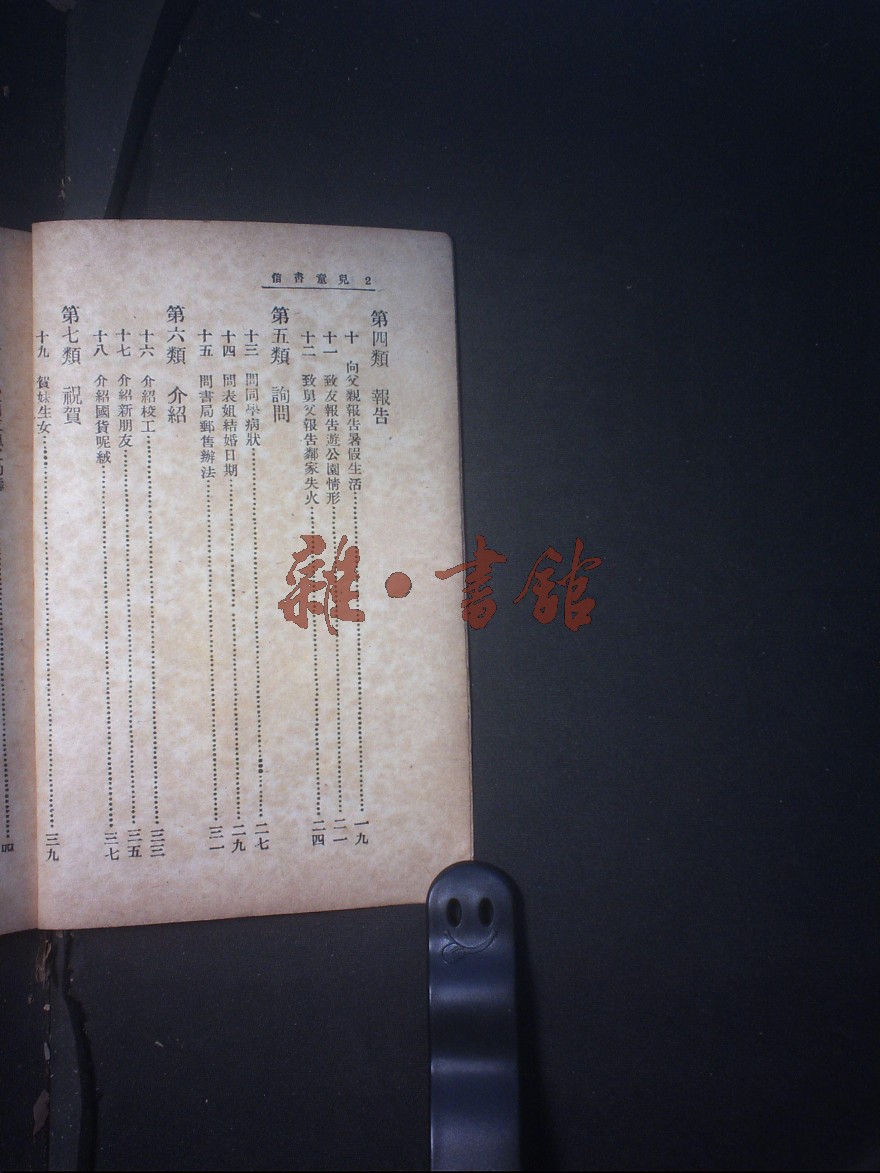 信書童兒 2
第四類 報告
十 向父親報告暑假生活……一九
十一 致友報告遊公園情形……二一
十二 致舅父報告鄰家失火……二四
第五類 詢問
十三 問同學病狀……二七
十四 問表姐結婚日期……二九
十五 問書局郵售辦法……三一
第六類 介紹
十六 介紹校工……三三
十七 介紹新朋友……三五
十八 介紹國貨呢絨……三七
第七類 祝賀
十九 賀妹生女……三九
雜·書館